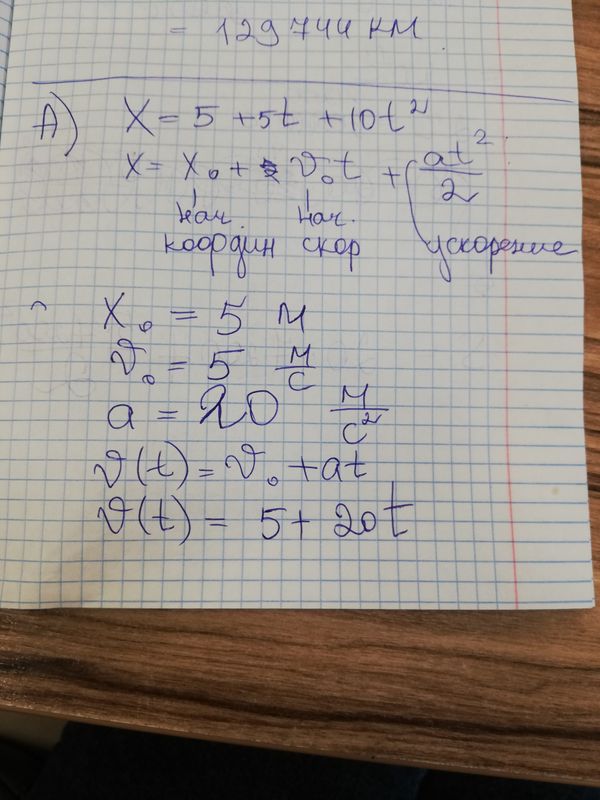 = 129744 км
А) X = 5 + 5t + 10t²
x = x₀ + v₀t + at²/2
нач. нач.
коордін скор ускорение
X₀ = 5 м
v₀ = 5 м/с
a = 20 м/с²
v(t) = v₀ + at
v(t) = 5 + 20t